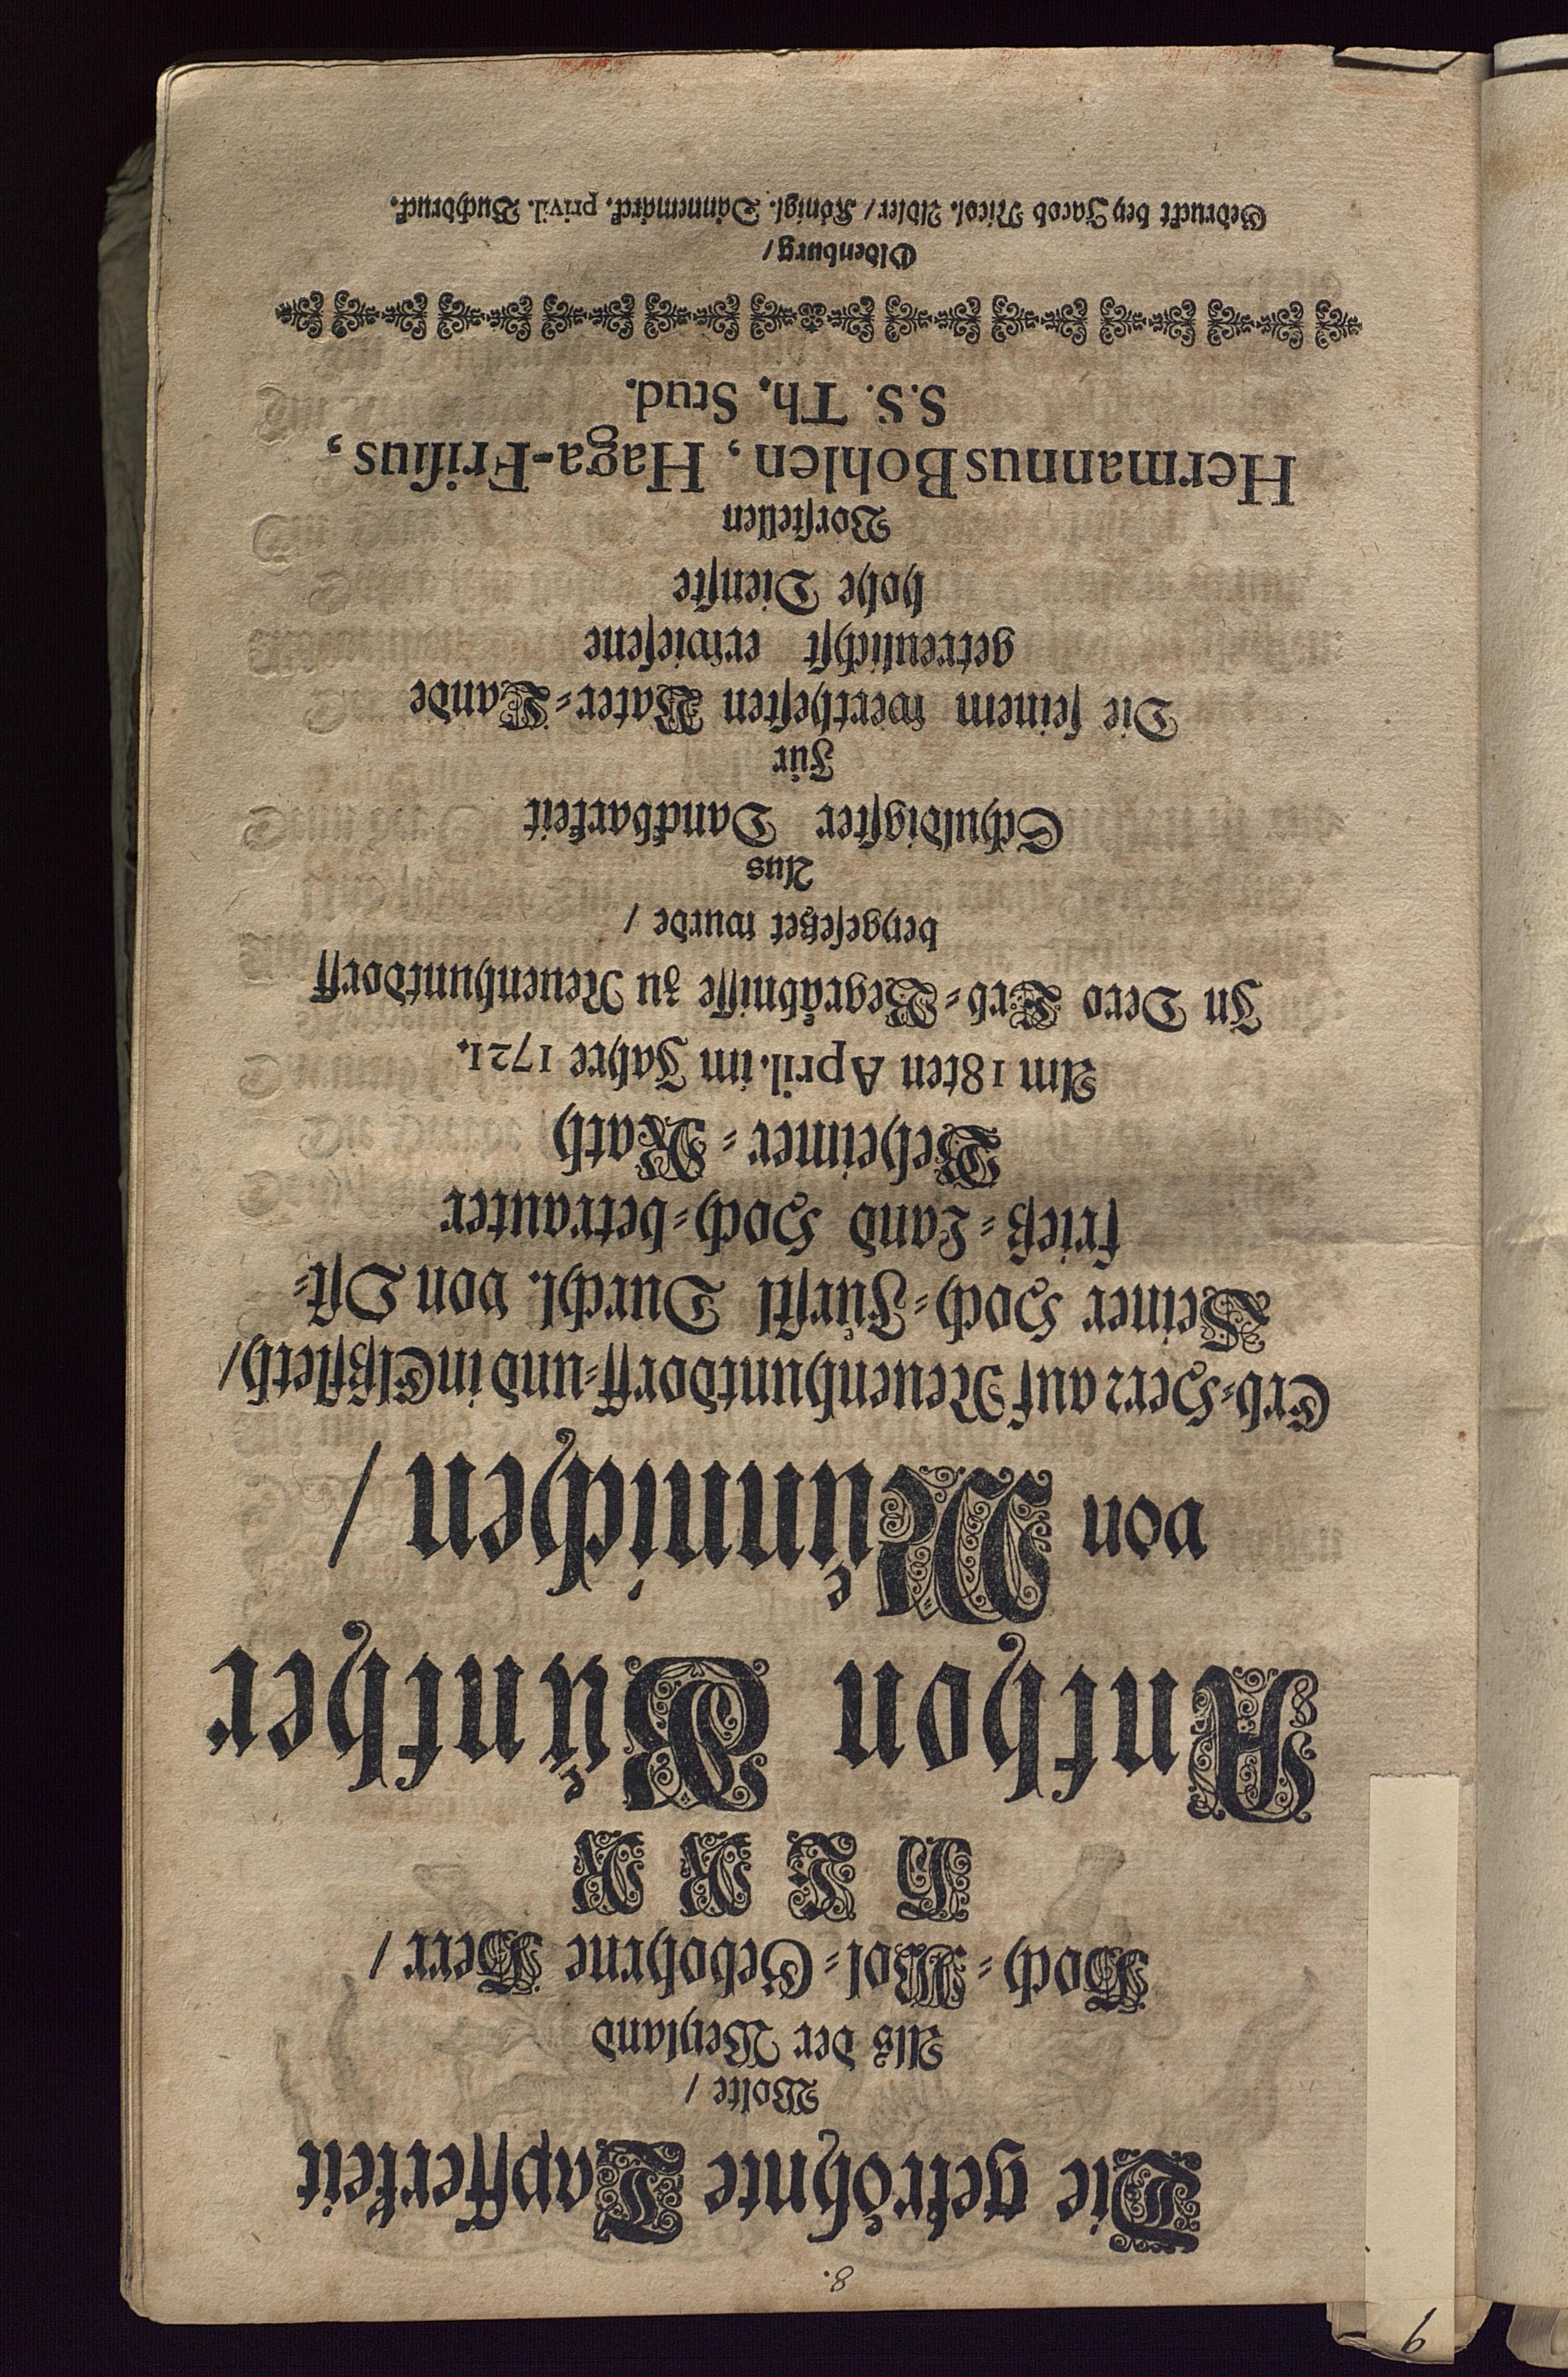 8.
Die gekröhnte Tapfferkeit
Wolte /
Alß der Weyland
Hoch-Wol-Gebohrne Herr /
HERR
Anthon Günther
von Münnichen /
Erb-Herr auf Neuenhuntdorff-und in Elßfleth /
Seiner Hoch-Fürstl Durchl. von Ost-
frieß-Land Hoch-betrauter
Geheimer-Rath
Am 18ten April. im Jahre 1721.
In Dero Erb-Begräbnisse zu Neuenhuntdorff
beygesetzet wurde /
Aus
Schuldigster Danckbarkeit
Für
Die seinem werthesten Vater-Lande
getreulichst erwiesene
hohe Dienste
Vorstellen
Hermannus Bohlen, Haga-Frisius,
S.S. Th. Stud.
Oldenburg /
Gedruckt bey Jacob Nicol. Adler / Königl. Dännemärck. privil. Buchdruck.